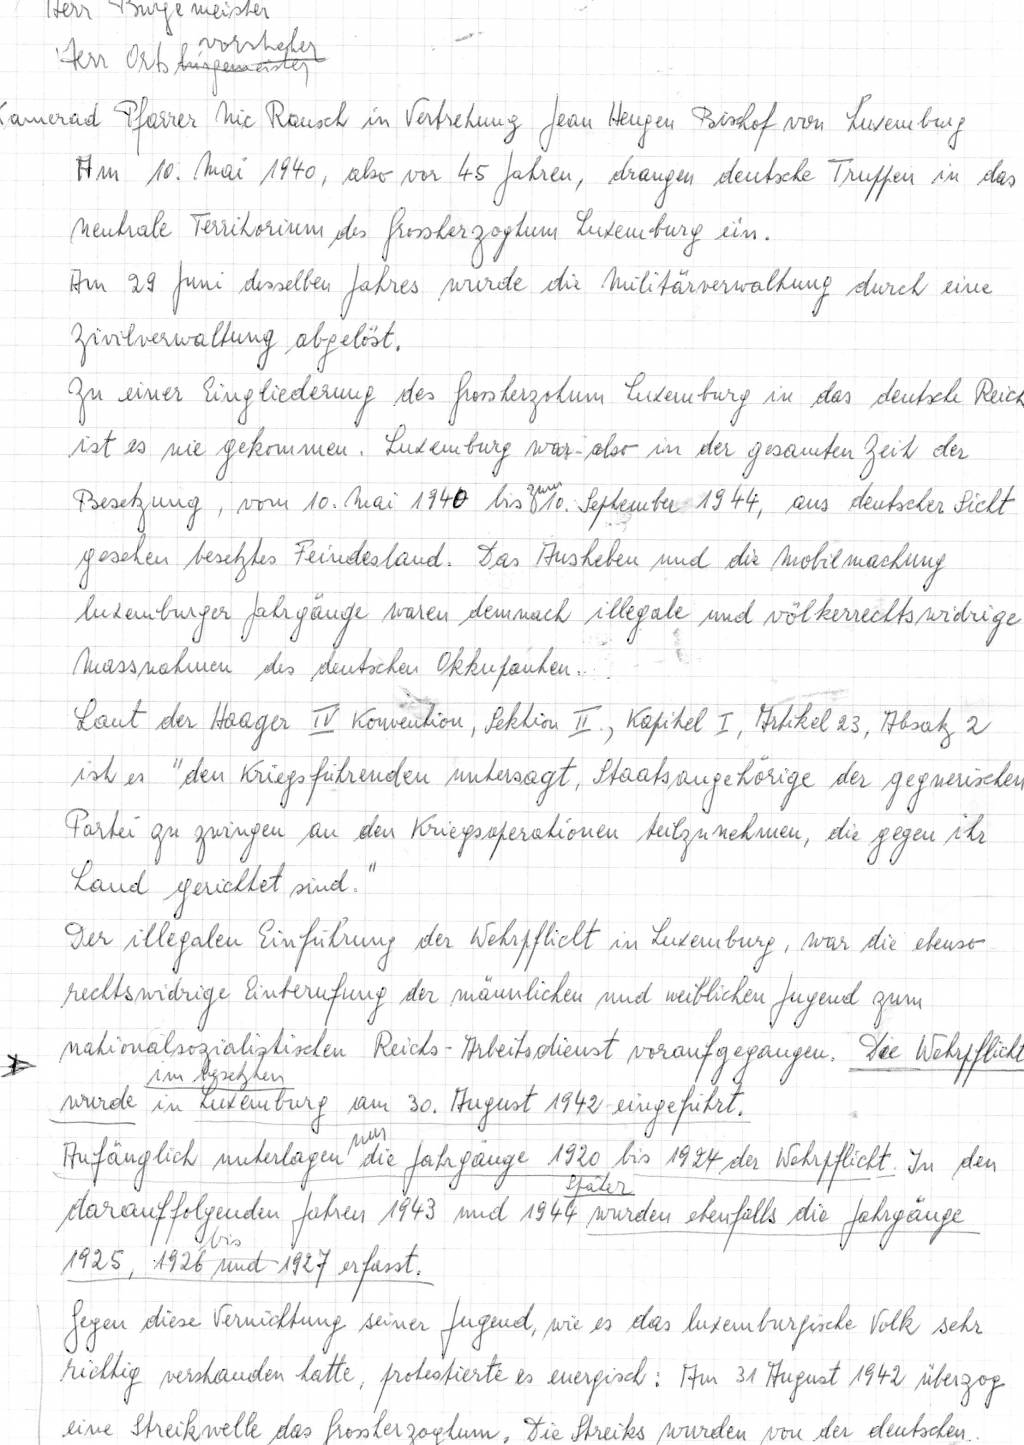 Herr Bürgemeister
vorsteher
Herr Ortsbürgemeister
Kamerad Pfarrer Nic Rausch in Vertretung Jean Hengen Bischof von Luxemburg
Am 10. Mai 1940, also vor 45 Jahren, drangen deutsche Truppen in das
neutrale Territorium des Grossherzogtum Luxemburg ein.
Am 29 Juni desselben Jahres wurde die Militärverwaltung durch eine
Zivilverwaltung abgelöst.
Zu einer Eingliederung des Grossherzohum Luxemburg in das deutsche Reich
ist es nie gekommen. Luxemburg war also in der gesamten Zeit der
Besetzung, vom 10. Mai 1940 bis zum 10. September 1944, aus deutscher Sicht
gesehen besetztes Feindesland. Das Ausheben und die Mobilmachung
luxemburger Jahrgänge waren demnach illegale und völkerrechtswidrige
Massnahmen des deutschen Okkupanten.
Laut der Haager IV Konvention, Sektion II., Kapitel I, Artikel 23, Absatz 2
ist es "den Kriegsführenden untersagt, Staatsangehörige der gegnerischen
Partei zu zwingen an den Kriegsoperationen teilzunehmen, die gegen ihr
Land gerichtet sind."
Der illegalen Einführung der Wehrpflicht in Luxemburg, war die ebenso
rechtswidrige Einberufung der männlichen und weiblichen Jugend zum
nationalsozialistischen Reichs-Arbeitsdienst voraufgegangen. Die Wehrpflicht
im besetzten
wurde in Luxemburg am 30. August 1942 eingeführt.
Anfänglich unterlagen nur die Jahrgänge 1920 bis 1924 der Wehrpflicht. In den
später
darauffolgenden Jahren 1943 und 1944 wurden ebenfalls die Jahrgänge
bis
1925, 1926 und 1927 erfasst.
Gegen diese Vernichtung seiner Jugend, wie es das luxemburgische Volk sehr
richtig verstanden hatte, protestierte es energisch: Am 31 August 1942 überzog
eine Streikwelle das Grossherzogtum. Die Streiks wurden von der deutschen